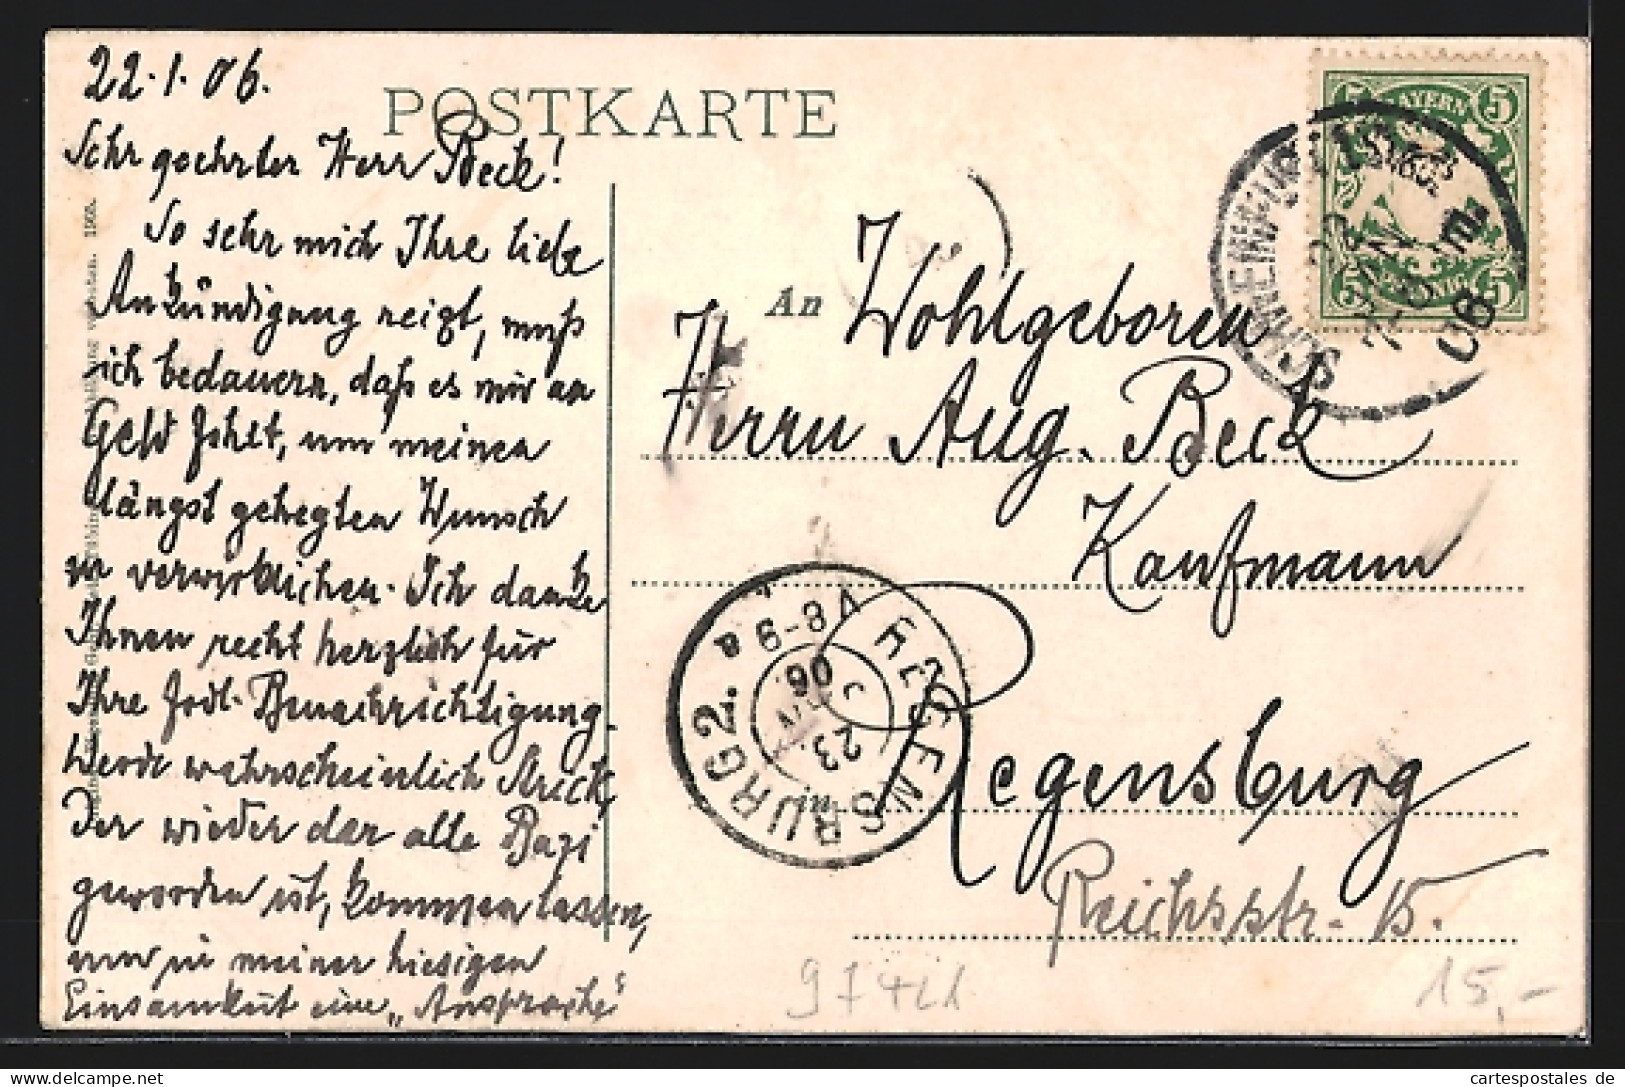 22.1.06.
POSTKARTE
Sehr geehrter Herr Beck!
So sehr mich Ihre liebe
Ankündigung reizt, muß
ich bedauern, daß es mir an
Geld fehlt, um meinen
längst gehegten Wunsch
zu verwirklichen. Ich danke
Ihnen recht herzlich für
Ihre Jodl-Benachrichtigung.
Werde wahrscheinlich Streck,
der wieder dar alle Bazi
geworden ist, kommen lassen,
um in meiner hiesigen
Einsamkeit eine „Ansprache"
1905.
BAYERN
5 5
5 5
SCHWEINFURT
JAN
06
An
Wohlgeboren
Herrn Aug. Beck
Kaufmann
in
Regensburg
Reichsstr. 15.
REGENSBURG 2.
6-8
23.
06
15,-
cartespostales de